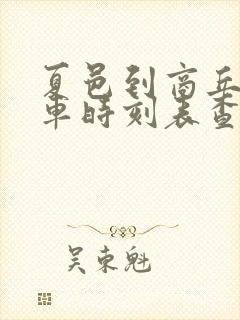 夏邑到商丘
车时刻表查
吴东魁